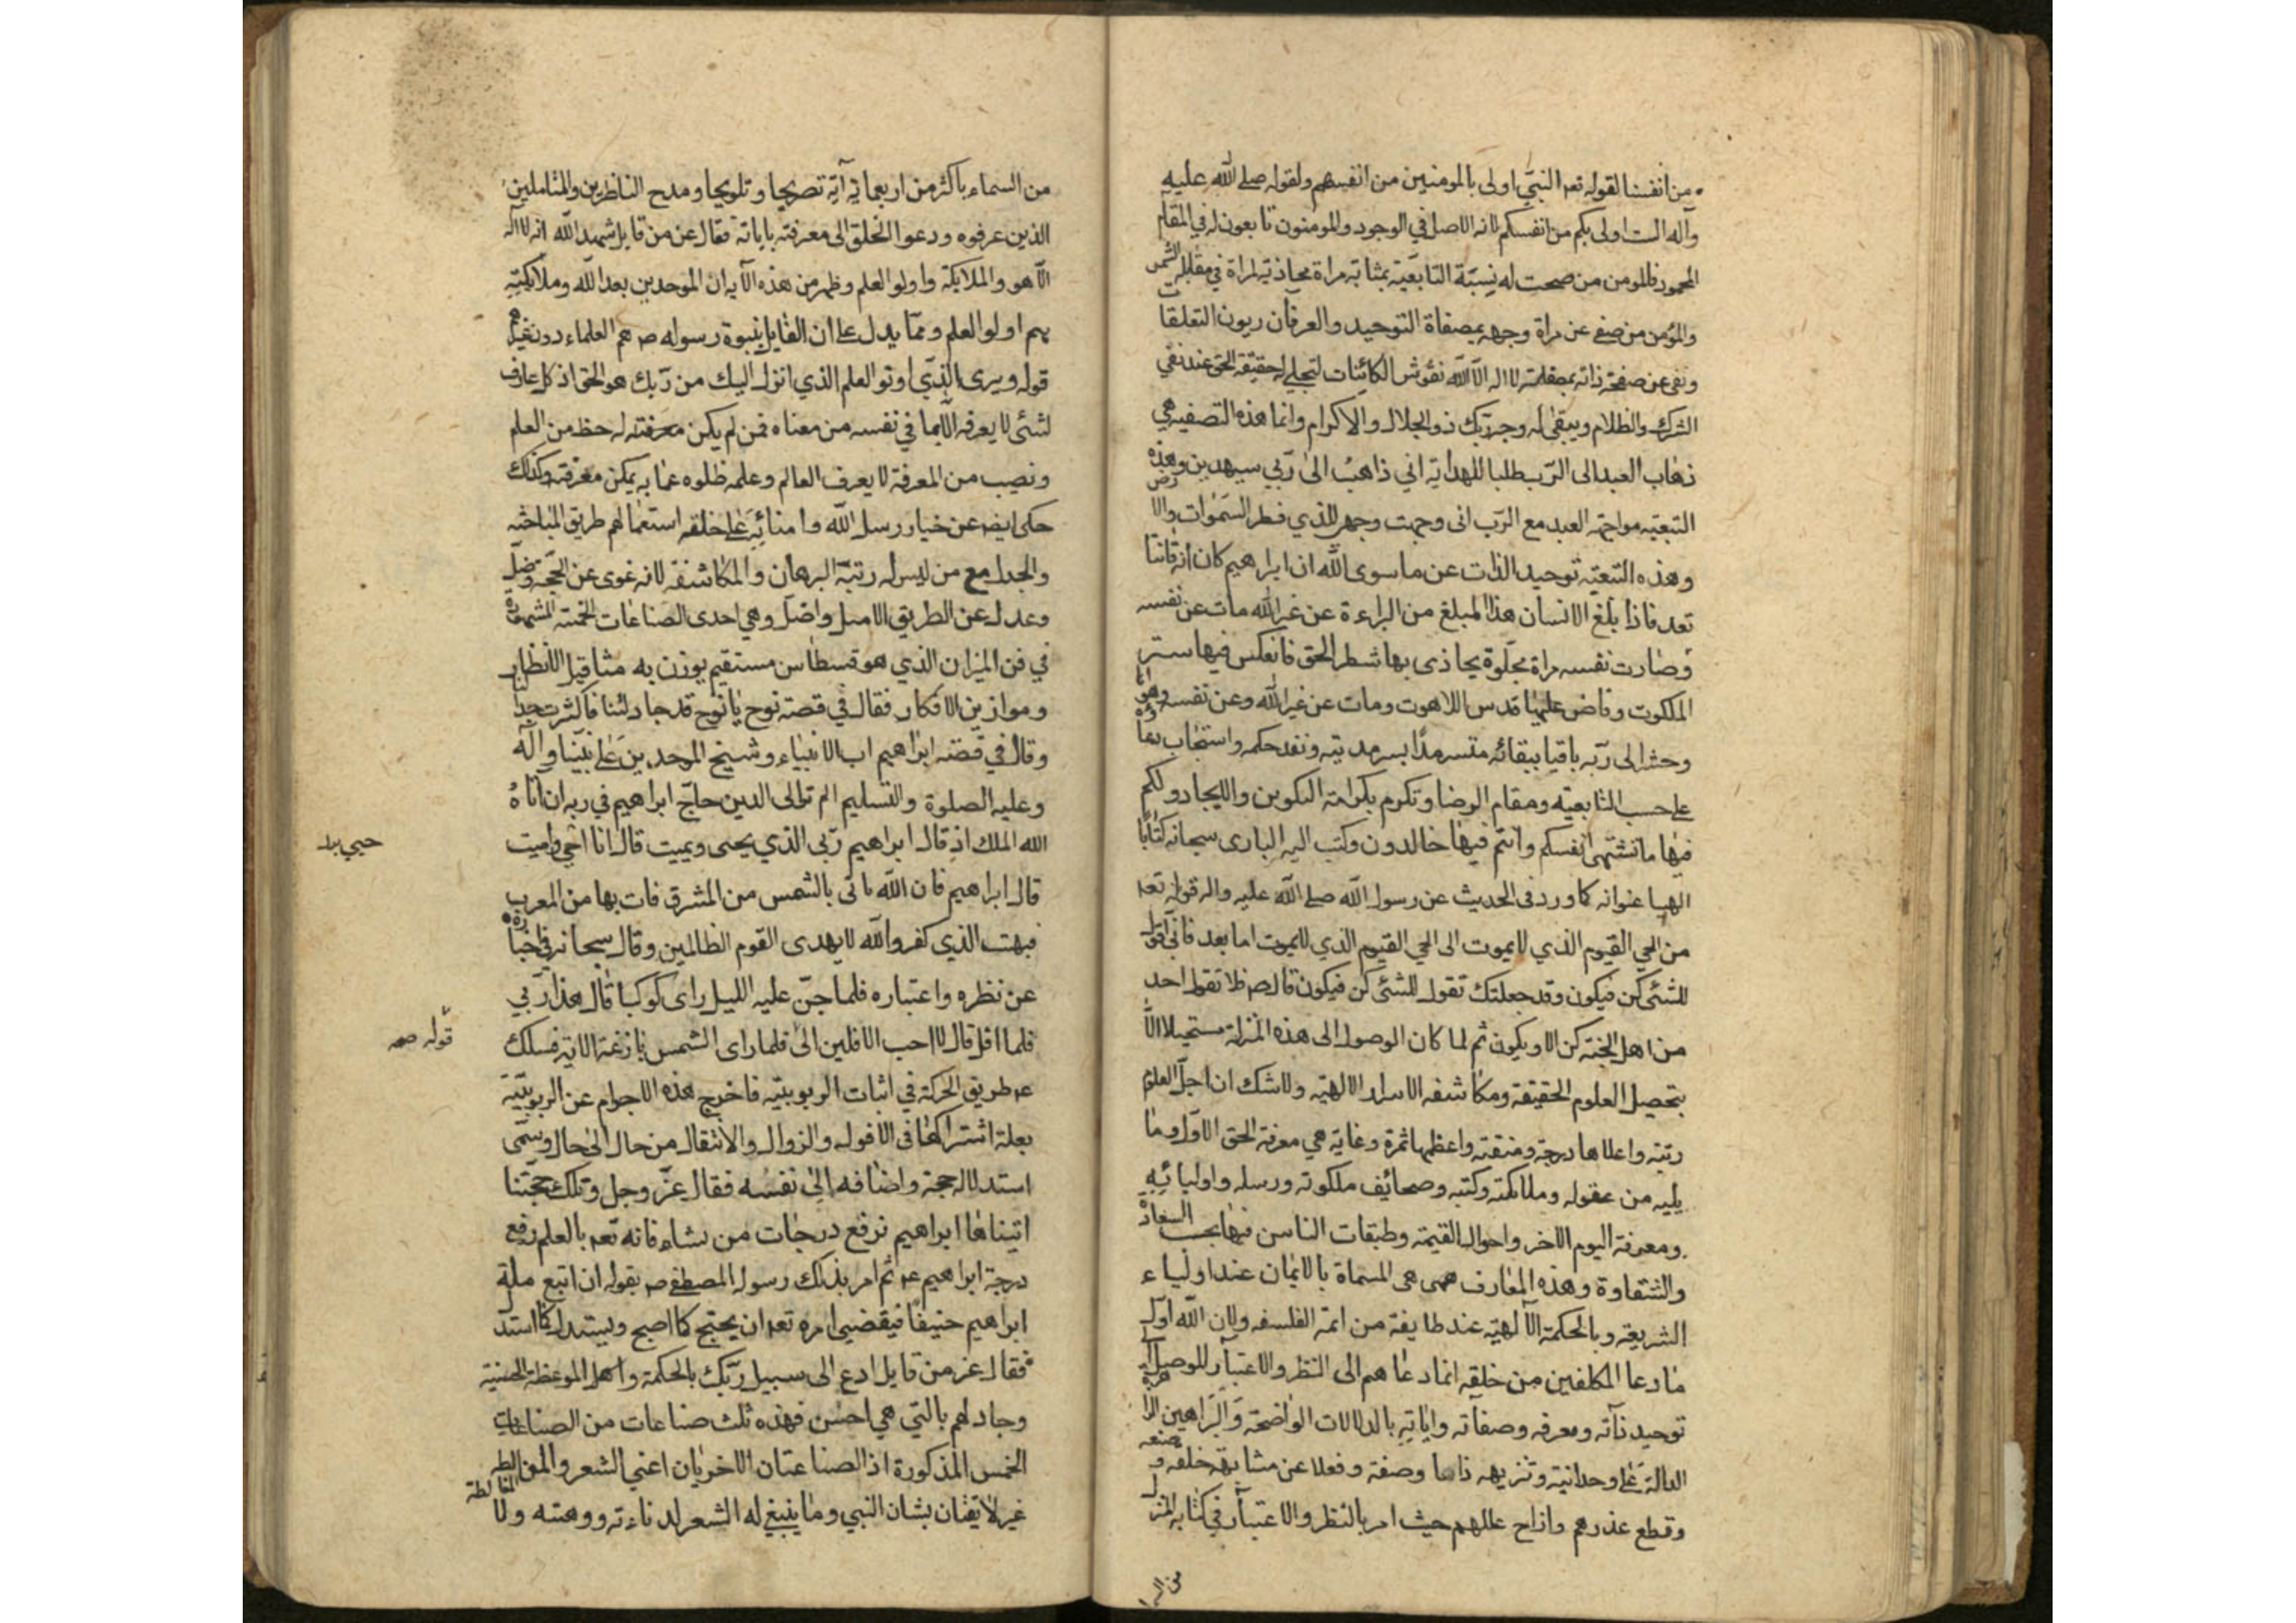 من انفسنا لقوله تعه النبي اولى بالمومنين من انفسهم ولقوله صلى الله عليه
وآله الست اولى بكم من انفسكم لانه الاصل في الوجود والمومنون تابعون له في المقام
المحمود فالمومن من صحت له نسبة التابعية بمثابة مراة محاذية لمراة في مقابلة الشمس
والمؤمن من صفى عن مراة وجهه بمصفاة التوحيد والعرفان ريون التعلقات
ونفى عن صفحة ذاته بمصقلة لا اله الا الله نقوش الكائنات لتجلى له حقيقة الحق عند نفي
الشرك والظلام ويبقى له وجه ربك ذو الجلال والاكرام وانما هذه التصفيه هي
ذهاب العبد الى الرب طلبا للهداية اني ذاهب الى ربي سيهدين وهذه
التبعيه مواجهة العبد مع الرب انى وجهت وجهي للذي فطر السموات والارض
وهذه التبعيه توحيد الذات عن ما سوى الله ان ابراهيم كان امة قانتا
تعد فاذا بلغ الانسان هذا المبلغ من البراءة عن غير الله مات عن نفسه
وصارت نفسه مراة مجلوة يحاذى بها شطر الحق فانعكس فيها سر
الملكوت وفاض عليها قدس اللاهوت ومات عن غير الله وعن نفسه وهواه
وحشر الى ربه باقيا ببقائه متسرمدا بسرمديته ونفد حكمه واستجاب دعاؤه
على حسب التابعيه ومقام الرضا وتكرم بكرامة التكوين والايجاد ولكم
فيها ما تشتهى انفسكم وانتم فيها خالدون وكتب اليه البارى سبحانه كتابا
الهيا عنوانه كما ورد في الحديث عن رسول الله صلى الله عليه واله قوله تعه
من الحي القيوم الذي لا يموت الى الحي القيوم الذي لا يموت اما بعد فاني اقول
للشئ كن فيكون وقد جعلتك تقول للشئ كن فيكون قال صم فلا تقول احد
من اهل الجنة كن الا ويكون ثم لما كان الوصول الى هذه المنزلة مستحيلا الا
بتحصيل العلوم الحقيقة ومكاشفه الاسرار الالهيه ولا شك ان اجل العلوم
رتبة واعلاها درجة ومنقبة واعظمها ثمرة وغاية هي معرفة الحق الاول وما
يليه من عقوله وملائكته وكتبه وصحائف ملكوته ورسله واوليائه
ومعرفة اليوم الاخر واحوال القيمة وطبقات الناس فيها بحسب السعادة
والشقاوة وهذه المعارف هى المسماة بالايمان عند اولياء
الشريعة وبالحكمة الالهيه عند طايفة من ائمة الفلسفه ولان الله اول
ما دعا المكلفين من خلقه انما دعاهم الى النظر والاعتبار للوصول الى
توحيد ذاته ومعرفه وصفاته واياته بالدلالات الواضحة والبراهين الزاهرة
الدالة على وحدانية وتنزيهه ذاتا وصفة وفعلا عن مشابهة خلقه وصنعه
وقطع عذرهم وازاح عللهم حيث امر بالنظر والاعتبار في كتابه المنزل
من السماء باكثر من اربعماية آية تصريحا وتلويحا ومدح الناظرين والمتاملين
الذين عرفوه ودعوا الخلق الى معرفته باياته فقال عن من قايل شهد الله انه لا اله
الا هو والملايكة واولو العلم وظهر من هذه الآيه ان الموحدين بعد الله وملايكته
هم اولو العلم ومما يدل على ان القايل بنبوة رسوله صم هم العلماء دون غيرهم
قوله ويرى الذي اوتو العلم الذي انزل اليك من ربك هو الحق اذ كل عارف
لشئ لا يعرفه الا بما في نفسه من معناه فمن لم يكن معرفته له حظ من العلم
ونصيب من المعرفة لا يعرف العالم وعلمه خلوه عما به يمكن معرفته وكذلك
حكى ايضا عن خيار رسل الله وامنائه على خلقه استعمالهم طريق المباحثه
والجدل مع من ليس له رتبة البرهان والمكاشفة لانه غوى عن الحجة وضل
وعدل عن الطريق الامثل واضل وهي احدى الصناعات الخمسة المشهورة
في فن الميزان الذي هو قسطاس مستقيم يوزن به مثاقيل الانظار
وموازين الافكار فقال في قصة نوح يا نوح قد جادلتنا فاكثرت جدالنا
وقال في قصه ابراهيم اب الانبياء وشيخ الموحدين على نبينا وآله
وعليه الصلوة والتسليم الم تر الى الذين حاج ابراهيم في ربه ان اتاه
الله الملك اذ قال ابراهيم ربي الذي يحيى ويميت قال انا احيي واميت
قال ابراهيم فان الله ياتى بالشمس من المشرق فات بها من المغرب
فبهت الذي كفر والله لا يهدى القوم الظالمين وقال سبحانه في اخباره
عن نظره واعتباره فلما جن عليه الليل راى كوكبا قال هذا ربي
قوله صم
فلما افل قال لا احب الافلين الى فلما راى الشمس بازغة الاية فسلك
عم طريق الحركة في اثبات الربوبيه فاخرج هذه الاجرام عن الربوبية
بعلة اشتراكها في الافول والزوال والانتقال من حال الى حال وسمى
استدلاله حجة واضافه الى نفسه فقال عز وجل وتلك حجتنا
اتيناها ابراهيم نرفع درجات من نشاء فانه تعه بالعلم رفع
درجة ابراهيم عم ثم امر بذلك رسوله المصطفى صم بقوله ان اتبع ملة
ابراهيم حنيفا فيقضي امره تعه ان يحتج كما احتج ويستدل كما استدل
فقال عز من قايل ادع الى سبيل ربك بالحكمة والموعظة الحسنة
وجادلهم بالتي هي احسن فهذه ثلث صناعات من الصناعات
الخمس المذكورة اذ الصناعتان الاخريان اعني الشعر والمغالطة
غير لايقتان بشان النبي وما ينبغي له الشعر لدناءته ووهنه ولا
من السما